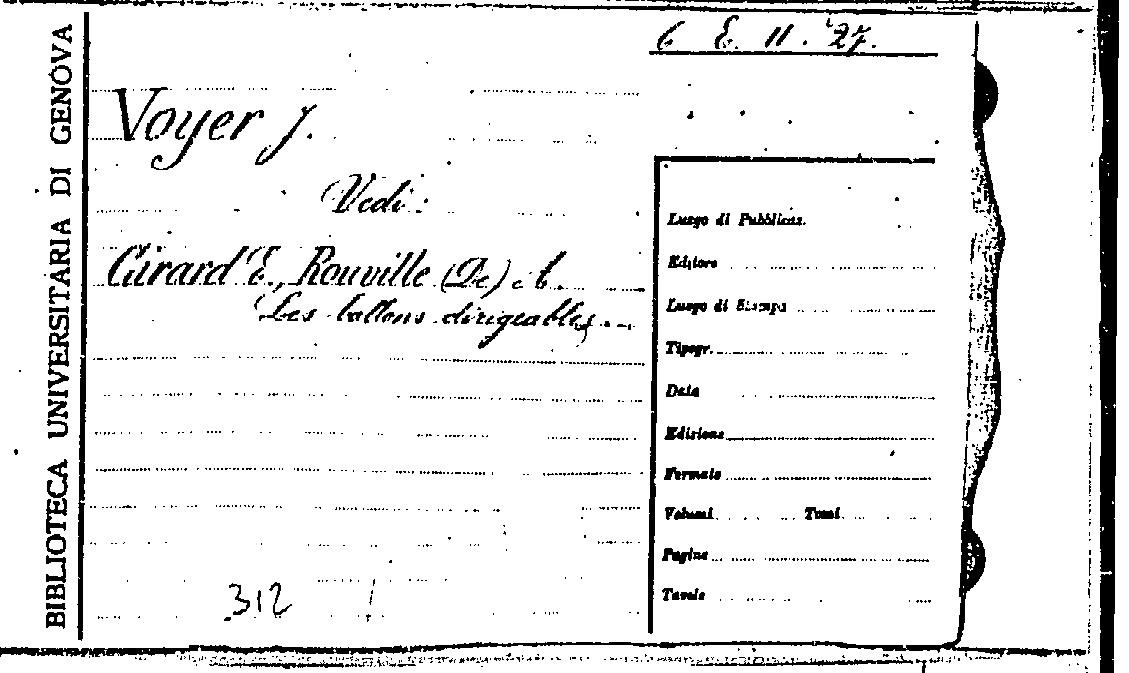 BIBLIOTECA UNIVERSITARIA DI GENOVA
6 E. 11. 27.
Voyer J.
Vedi:
Girard E., Rouville (De) e b.
Les ballons dirigeables...
Luogo di Pubblicaz.
Editore
Luogo di Stampa
Tipogr.
Data
Edizione
Formato
Volumi Tomi
Pagine
Tavole
312